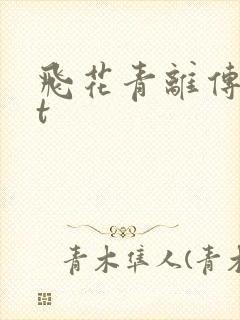 飛花青離傳
t
青木隼人(青木